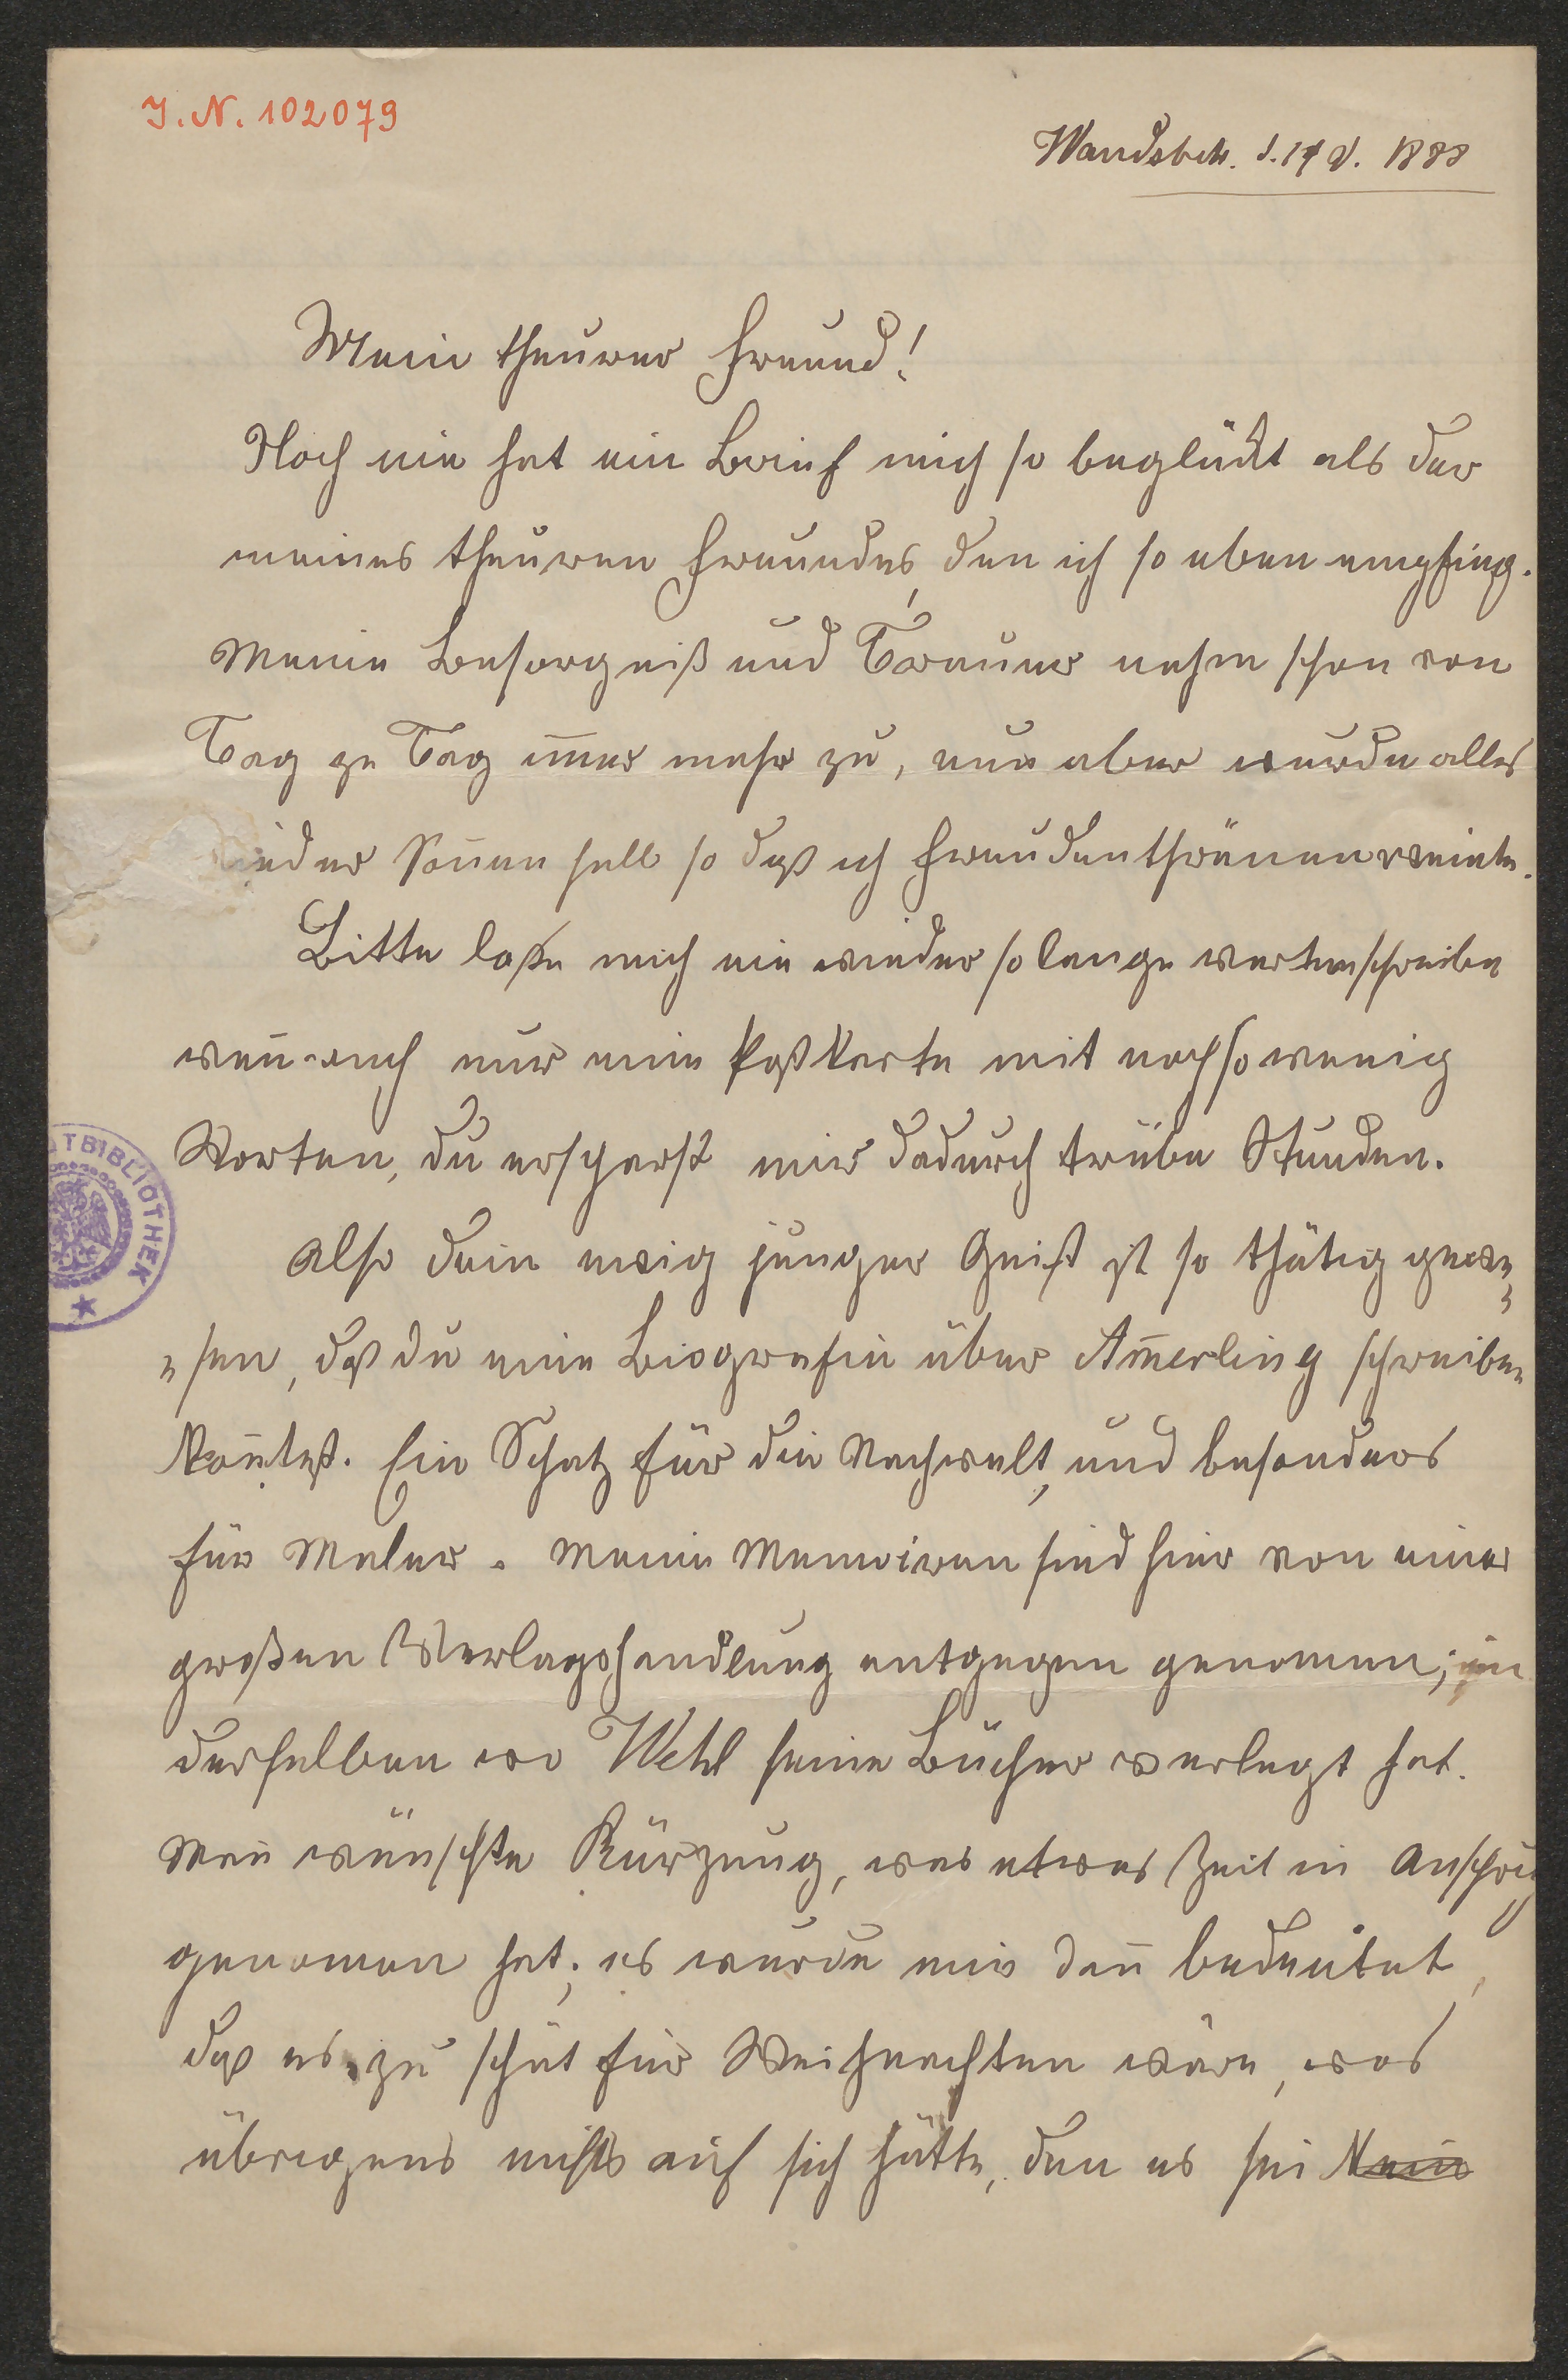 J. N. 102079
Wandsbek. d. 1888
Mein theurer Freund!
Noch nie hat ein Brief mich so beglückt als der
meines theuren Freundes, den ich so eben empfing.
Meine Besorgniß und Trauer nahm schon von
Tag zu Tag im̄er mehr zu, nun aber wurde alles
wieder Son̄en hell so daß ich Freudenthränen weinte.
Bitte laße mich nie wieder so lange warten schreibe
wen̄ auch nur eine Postkarte mit noch so wenig
Worten, du ersparst mir dadurch trübe Stunden.
Also dein ewig junger Geist ist so thätig gewe„
„sen, daß du eine Biografie über Am̄erling schreiben
kon̄test. Ein Schatz für die Nachwelt, und besonders
für Maler. Meine Memoiren sind hier von einer
großen Verlagshandlung entgegen genomen; in
derselben wo Wehl seine Bücher verlegt hat.
Man wünschte Kürzung, was etwas Zeit in Anspruch
genomen hat; es wurde mir dan̄ bedeutet,
daß es zu spät für Weihnachten wäre, was
übrigens nichts auf sich hätte, den es sei Kein
TBIBLIOTHEK